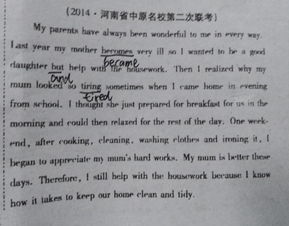 (2014·河南省中原名校第二次联考)
My parents have always been wonderful to me in every way.
Last year my mother becomes very ill so I wanted to be a good
became
daughter but help with the housework. Then I realized why my
and
mum looked so tiring sometimes when I came home in evening
tired
from school. I thought she just prepared for breakfast for us in the
morning and could then relaxed for the rest of the day. One week-
end, after cooking, cleaning, washing clothes and ironing it, I
began to appreciate my mum's hard works. My mum is better these
days. Therefore, I still help with the housework because I know
how it takes to keep our home clean and tidy.